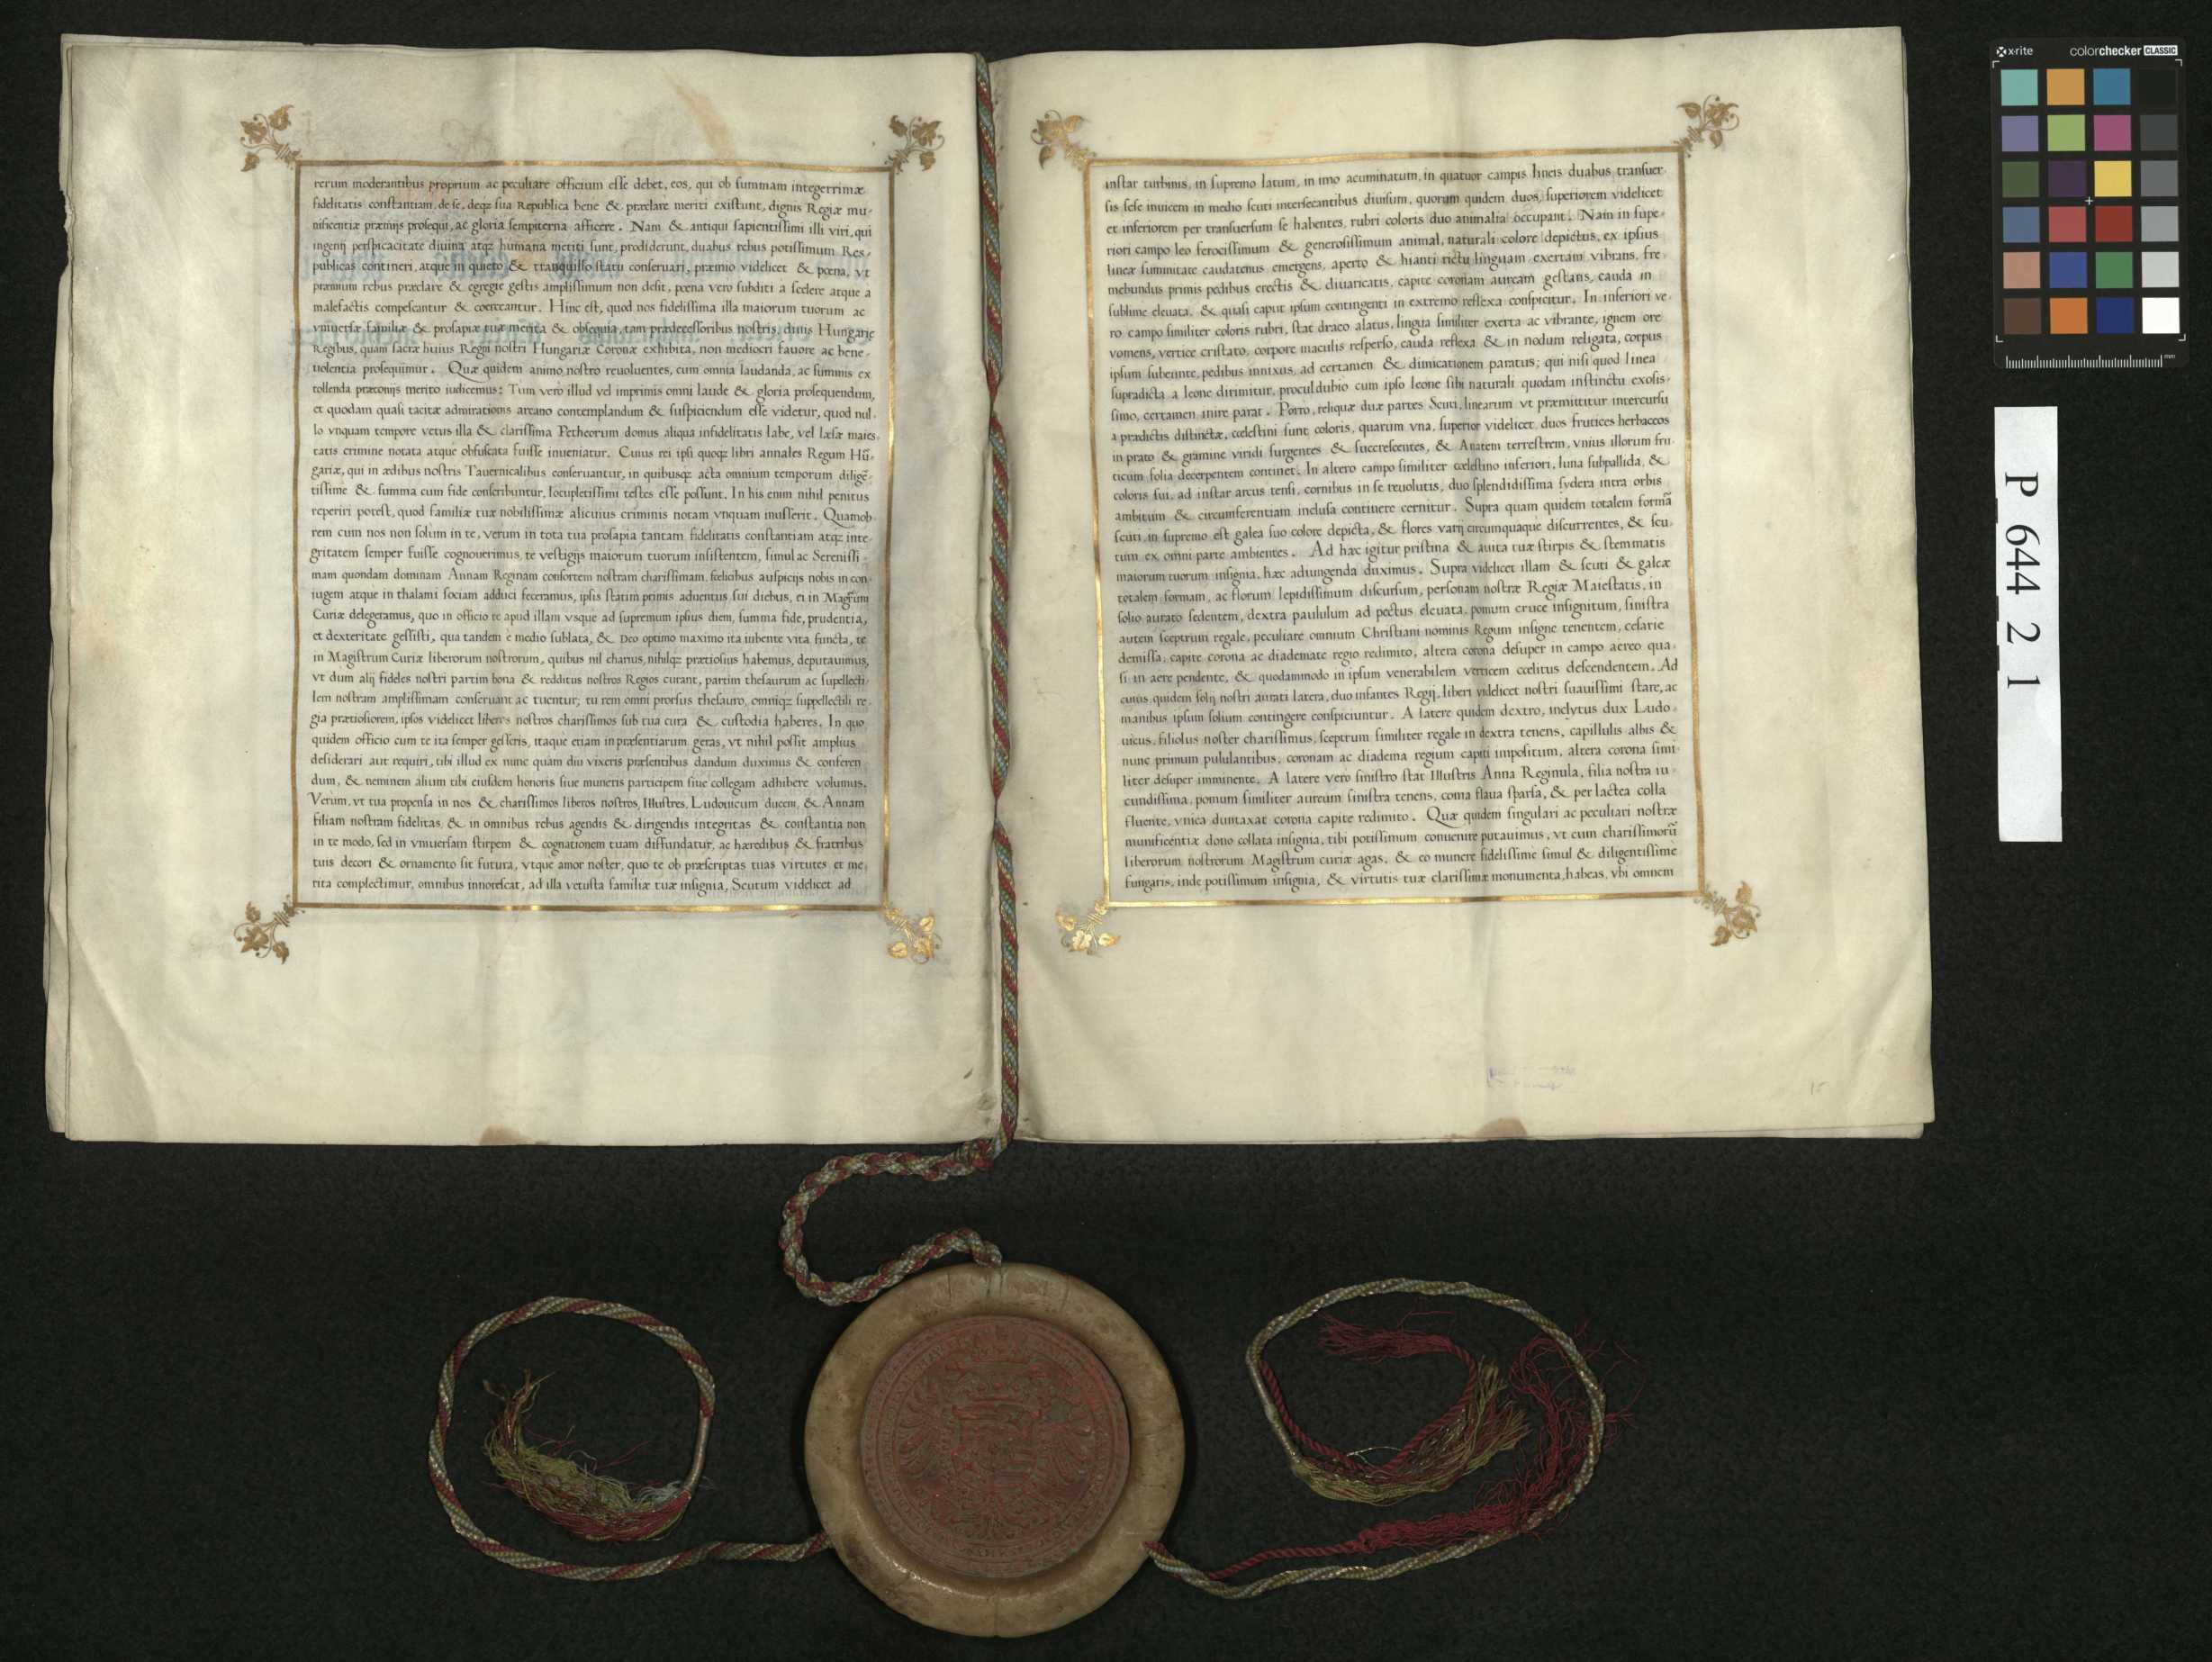 rerum moderantibus proprium ac peculiare officium esse debet, eos, qui ob summam integerrimæ
fidelitatis constantiam, de se, deqз sua Republica bene & præclare meriti existunt, dignis Regiæ mu-
nificentiæ præmijs prosequi, ac gloria sempiterna afficere. Nam & antiqui sapientissimi illi viri, qui
ingenij perspicacitate diuina atqз humana metiti sunt, prodiderunt, duabus rebus potissimum Res-
publicas contineri, atque in quieto & tranquillo statu conseruari, præmio videlicet & pœna, vt
præmium rebus præclare & egregie gestis amplissimum non desit, pœna vero subditi a scelere atque a
malefactis compescantur & coerceantur. Hinc est, quod nos fidelissima illa maiorum tuorum ac
vniuersæ familiæ & prosapiæ tuæ merita & obsequia, tam prædecessoribus nostris, diuis Hungarię
Regibus, quam sacræ huius Regni nostri Hungariæ Coronæ exhibita, non mediocri fauore ac bene-
uolentia prosequimur. Quæ quidem animo nostro reuoluentes, cum omnia laudanda, ac summis ex
tollenda præconijs merito iudicemus: Tum vero illud vel imprimis omni laude & gloria prosequendum,
et quodam quasi tacitæ admirationis arcano contemplandum & suspiciendum esse videtur, quod nul-
lo vnquam tempore vetus illa & clarissima Petheorum domus aliqua infidelitatis labe, vel læsæ maies-
tatis crimine notata atque obfuscata fuisse inueniatur. Cuius rei ipsi quoqз libri annales Regum Hū-
gariæ, qui in ædibus nostris Tauernicalibus conseruantur, in quibusqз acta omnium temporum diligē-
tissime & summa cum fide conscribuntur, locupletissimi testes esse possunt. In his enim nihil penitus
reperiri potest, quod familiæ tuæ nobilissimæ alicuius criminis notam vnquam inusserit. Quamob-
rem cum nos non solum in te, verum in tota tua prosapia tantam fidelitatis constantiam atqз inte-
gritatem semper fuisse cognouerimus, te vestigijs maiorum tuorum insistentem, simul ac Serenissi-
mam quondam dominam Annam Reginam consortem nostram charissimam, fœlicibus auspicijs nobis in con-
iugem atque in thalami sociam adduci feceramus, ipsis statim primis aduentus sui diebus, ei in Magrūm
Curiæ delegeramus, quo in officio te apud illam vsque ad supremum ipsius diem, summa fide, prudentia,
et dexteritate gessisti, qua tandem è medio sublata, & Deo optimo maximo ita iubente vita functa, te
in Magistrum Curiæ liberorum nostrorum, quibus nil charius, nihilqз prætiosius habemus, deputauimus,
vt dum alij fideles nostri partim bona & redditus nostros Regios curant, partim thesaurum ac supellecti-
lem nostram amplissimam conseruant ac tuentur; tu rem omni prorsus thesauro, omniqз suppellectili re-
gia prætiosiorem, ipsos videlicet liberos nostros charissimos sub tua cura & custodia haberes. In quo
quidem officio cum te ita semper gesseris, itaque etiam in præsentiarum geras, vt nihil possit amplius
desiderari aut requiri, tibi illud ex nunc quàm diu vixeris præsentibus dandum duximus & conferen
dum, & neminem alium tibi eiusdem honoris siue muneris participem siue collegam adhibere volumus.
Verùm, vt tua propensa in nos & charissimos liberos nostros, Illustres, Ludouicum ducem, & Annam
filiam nostram fidelitas, & in omnibus rebus agendis & dirigendis integritas & constantia non
in te modo, sed in vniuersam stirpem & cognationem tuam diffundatur, ac hæredibus & fratribus
tuis decori & ornamento sit futura, vtque amor noster, quo te ob præscriptas tuas virtutes et me-
rita complectimur, omnibus innotescat, ad illa vetusta familiæ tuæ insignia, Scutum videlicet ad
instar turbinis, in supremo latum, in imo acuminatum, in quatuor campis lineis duabus transuer-
sis sese inuicem in medio scuti intersecantibus diuisum, quorum quidem duos, superiorem videlicet
et inferiorem per transuersum se habentes, rubri coloris duo animalia occupant. Nam in supe-
riori campo leo ferocissimum & generosissimum animal, naturali colore depictus, ex ipsius
lineæ summitate caudatenus emergens, aperto & hianti rictu linguam exertam vibrans, fre-
mebundus primis pedibus erectis & diuaricatis, capite coronam auream gestans, cauda in
sublime eleuata, & quasi caput ipsum contingenti in extremo reflexa conspicitur. In inferiori ve-
ro campo similiter coloris rubri, stat draco alatus, lingua similiter exerta ac vibrante, ignem ore
vomens, vertice cristato, corpore maculis resperso, cauda reflexa & in nodum religata, corpus
ipsum subeunte, pedibus innixus, ad certamen & dimicationem paratus; qui nisi quod linea
supradicta a leone dirimitur, proculdubio cum ipso leone sibi naturali quodam instinctu exosis-
simo, certamen inire parat. Porro, reliquæ duæ partes Scuti, linearum vt præmittitur intercursu
a prædictis distinctæ, cœlestini sunt coloris, quarum vna, superior videlicet, duos frutices herbaceos
in prato & gramine viridi surgentes & succrescentes, & Anatem terrestrem, vnius illorum fru-
ticum folia decerpentem continet. In altero campo similiter cœlestino inferiori, luna subpallida, &
coloris sui, ad instar arcus tensi, cornibus in se reuolutis, duo splendidissima sydera intra orbis
ambitum & circumferentiam inclusa continere cernitur. Supra quam quidem totalem formā
scuti, in supremo est galea suo colore depicta, & flores varij circumquaque discurrentes, & scu-
tum ex omni parte ambientes. Ad hæc igitur pristina & auita tuæ stirpis & stemmatis
maiorum tuorum insignia, hæc adiungenda duximus. Supra videlicet illam & scuti & galeæ
totalem formam, ac florum lepidissimum discursum, personam nostræ Regiæ Maiestatis, in
solio aurato sedentem, dextra paululum ad pectus eleuata, pomum cruce insignitum, sinistra
autem sceptrum regale, peculiare omnium Christiani nominis Regum insigne tenentem, cesarie
demissa, capite corona ac diademate regio redimito, altera corona desuper in campo aereo qua-
si in aere pendente, & quodammodo in ipsum venerabilem verticem cœlitus descendentem. Ad
cuius quidem solij nostri aurati latera, duo infantes Regij, liberi videlicet nostri suauissimi stare, ac
manibus ipsum solium contingere conspiciuntur. A latere quidem dextro, inclytus dux Ludo-
uicus, filiolus noster charissimus, sceptrum similiter regale in dextra tenens, capillulis albis &
nunc primum pululantibus, coronam ac diadema regium capiti impositum, altera corona simi-
liter desuper imminente. A latere vero sinistro stat Illustris Anna Reginula, filia nostra iu-
cundissima, pomum similiter aureum sinistra tenens, coma flaua sparsa, & per lactea colla
fluente, vnica duntaxat corona capite redimito. Quæ quidem singulari ac peculiari nostræ
munificentiæ dono collata insignia, tibi potissimum conuenire putauimus, vt cum charissimorū
liberorum nostrorum Magistrum curiæ agas, & eo munere fidelissime simul & diligentissime
fungaris, inde potissimum insignia, & virtutis tuæ clarissimæ monumenta, habeas, vbi omnem
15
x-rite colorchecker CLASSIC
mm
P 644 2 1